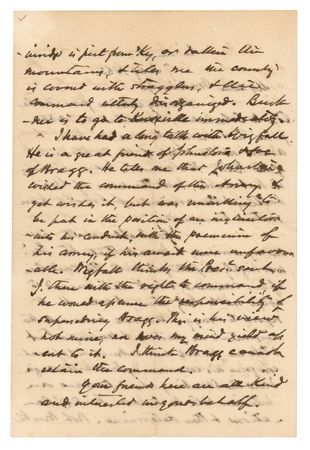 -vindge is just from Ky, or rather the
mountains, & tells me the country
is covered with stragglers, & the
command utterly disorganized. Buck-
-ner is to go to Knoxville immediately.
I have had a long talk with Wigfall.
He is a great friend of Johnston's & foe
of Bragg. He tells me that Johnston
wished the command of this Army &
yet wishes it, but was unwilling to
be put in the position of an inquisitor
into his conduct, with the possession of
his army, if his award were unfavor-
able. Wigfall thinks, the Pres't sent
J. there with the right to command, if
he would assume the responsibility of
superseding Bragg. This is his view
not mine, nor does my mind yield ass-
ent to it. I think Bragg cannot
retain the command.
Your friends here are all kind
and interested in your behalf.